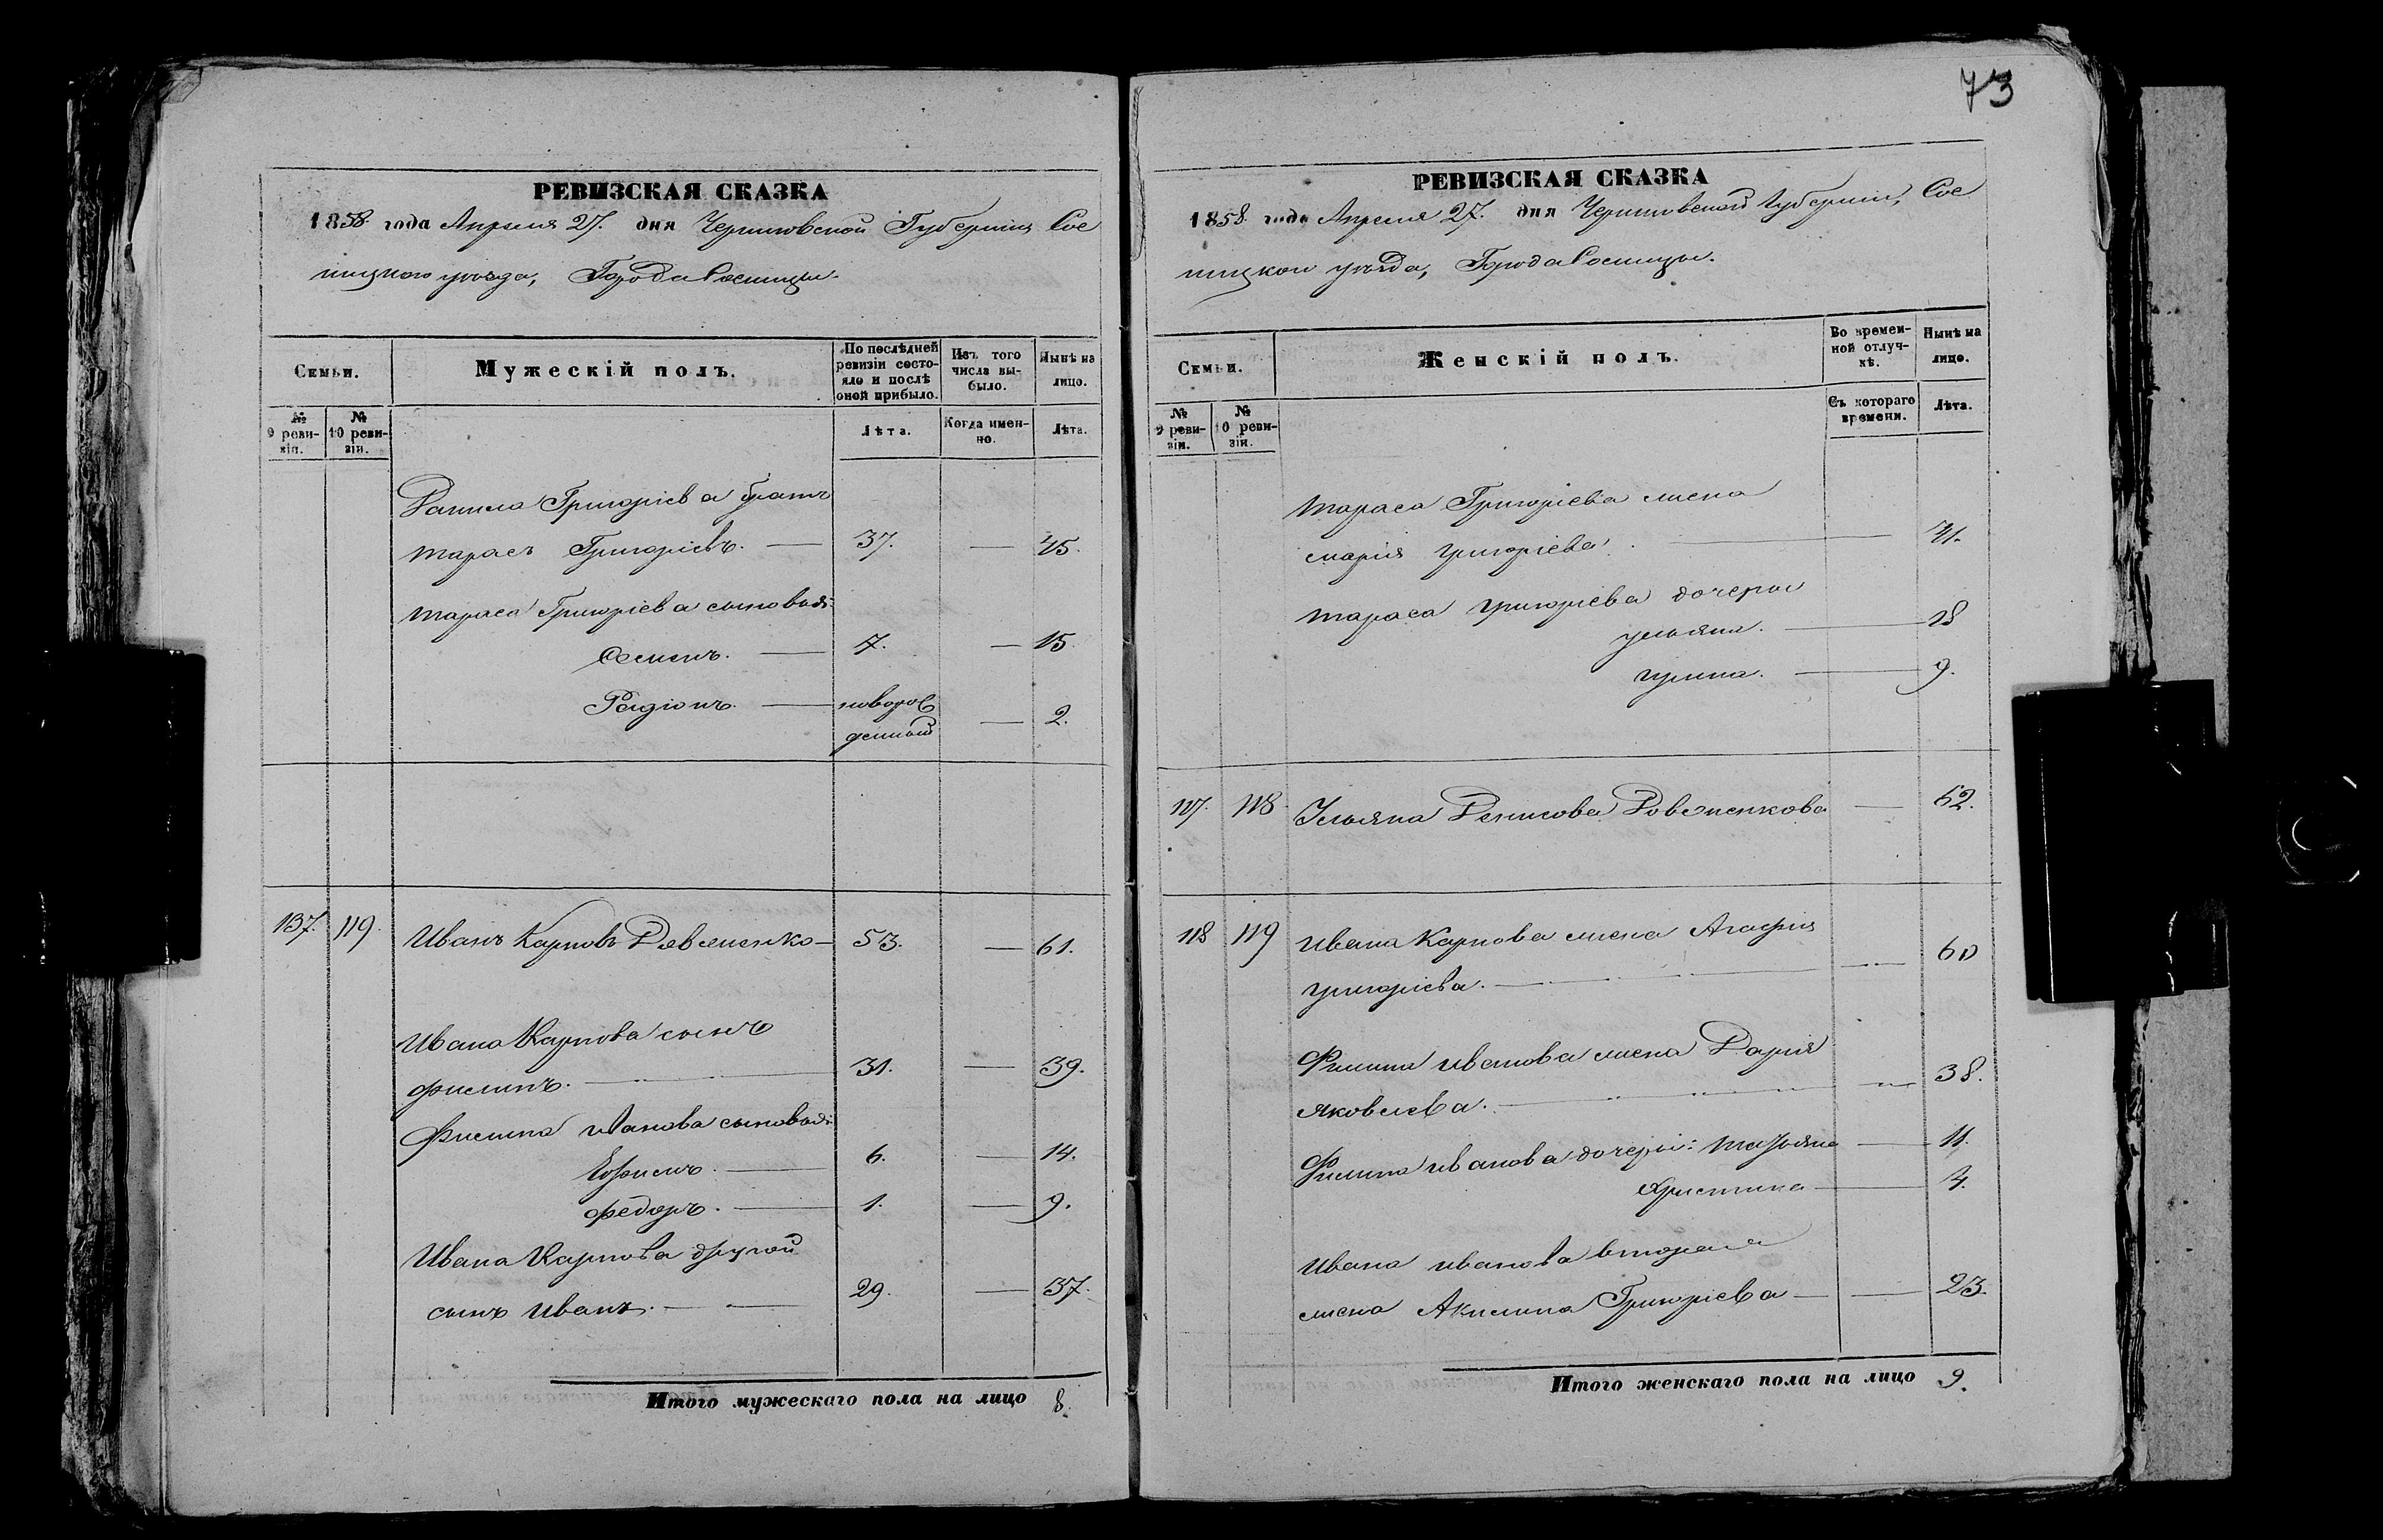 73
РЕВИЗСКАЯ СКАЗКА
1858 года Апреля 27. дня Черниговской Губерніи, Сос
ницкого уѣзда, Города Сосницы.
Семьи.
Мужескій полъ.
По послѣдней ревизіи состояло и послѣ оной прибыло.
Изъ того числа выбыло.
Нынѣ на лицо.
№ 9 ревизіи.
№ 10 ревизіи.
Лѣта.
Когда именно.
Лѣта.
Данила Григоріева братъ
Тарасъ Григоріевъ. — 37. — 45.
Тараса Григоріева сыновья:
Семенъ. — 7. — 15
Радіонъ. — новорож
денный — 2.
137. 119. Иванъ Карповъ Довженко — 53. — 61.
Ивана Карпова сынъ
Филипъ. — 31. — 39.
Филипа Иванова сыновья:
Ефимъ. — 6. — 14.
Федоръ. — 1. — 9.
Ивана Карпова другой
сынъ Иванъ. — 29. — 37.
Итого мужескаго пола на лицо 8.
РЕВИЗСКАЯ СКАЗКА
1858 года Апреля 27. дня Черниговской Губерніи, Сос
ницкой уѣзда, Города Сосницы.
Семьи.
Женскій полъ.
Во временной отлучкѣ.
Нынѣ на лицо.
№ 9 ревизіи.
№ 10 ревизіи.
Съ котораго времени.
Лѣта.
Тараса Григоріева жена
Марія Григоріева. — 41.
Тараса Григоріева дочери
Ульяна. — 18
Ирина. — 9.
117. 118 Ульяна Денисова Довженкова — 62.
118 119 Ивана Карпова жена Агафія
Григоріева. — 60
Филипа Иванова жена Дарія
Яковлева. — 38.
Филипа Иванова дочери: Татьяна — 11.
Христина — 4.
Ивана Иванова вторая
жена Акилина Григоріева — 23.
Итого женскаго пола на лицо 9.